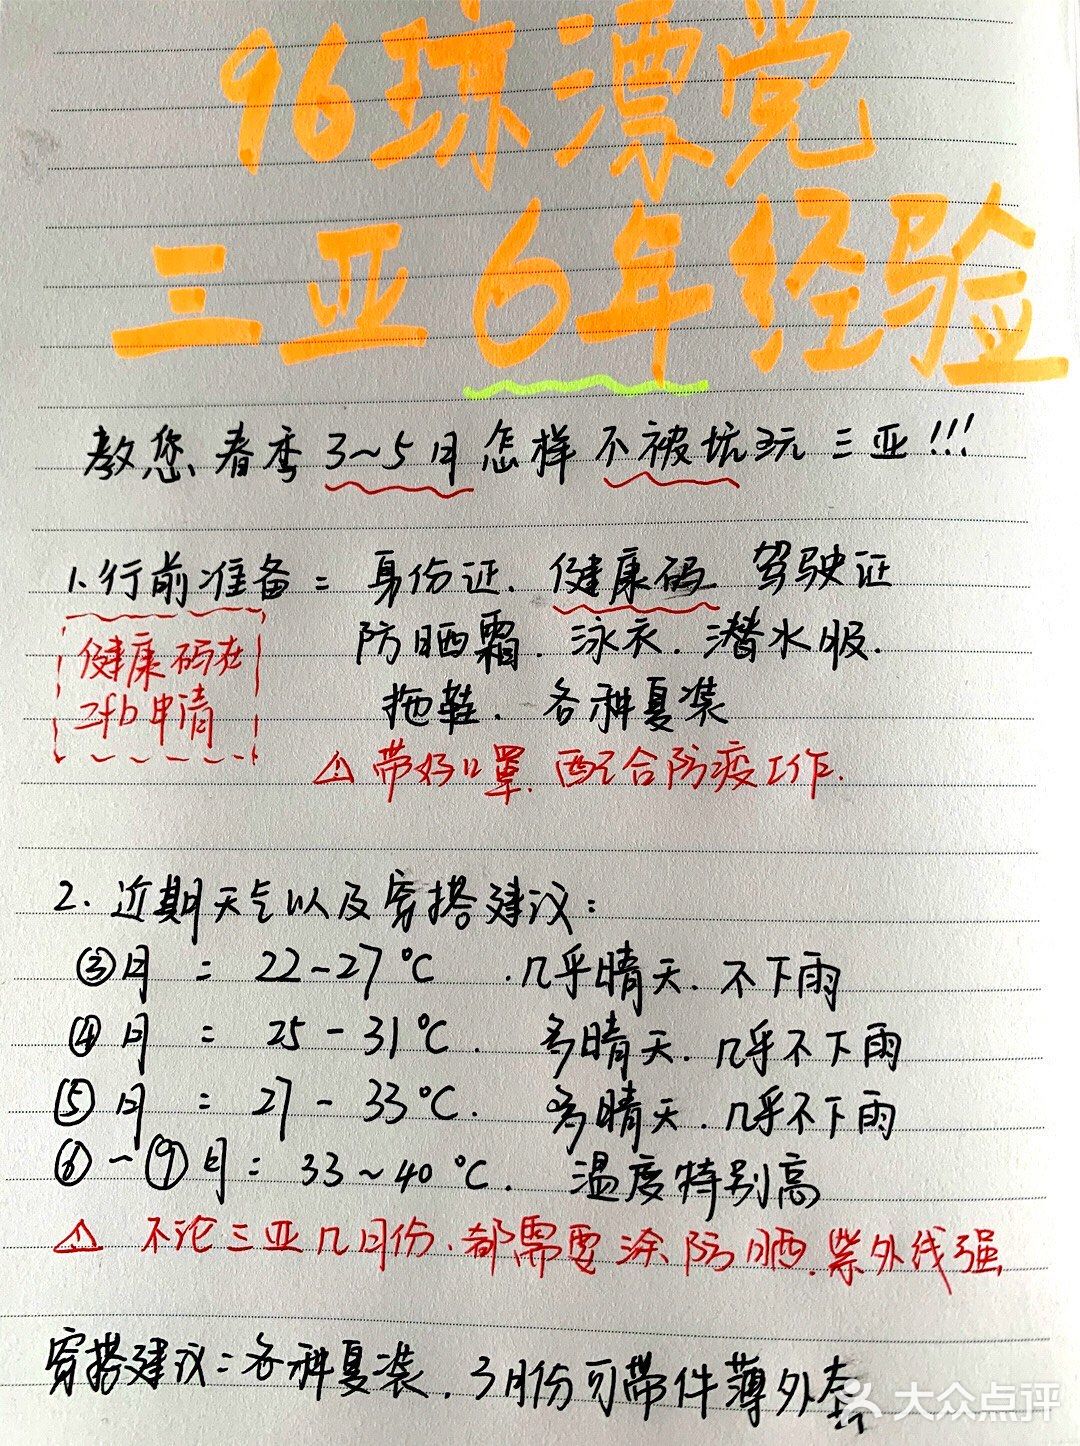 96琼漂党
三亚6年经验
教您春季3~5月怎样不被坑玩三亚!!!
1.行前准备: 身份证. 健康码. 驾驶证
防晒霜. 泳衣. 潜水服.
拖鞋. 各种夏装
健康码在
zfb申请
⚠带好口罩. 配合防疫工作.
2. 近期天气以及穿搭建议:
③月: 22-27℃. 几乎晴天. 不下雨
④月: 25-31℃. 多晴天. 几乎不下雨
⑤月: 27-33℃. 多晴天. 几乎不下雨
⑥-⑨月: 33~40℃. 温度特别高
⚠不论三亚几月份. 都需要涂防晒. 紫外线强
穿搭建议:各种夏装. 3月份可带件薄外套
大众点评